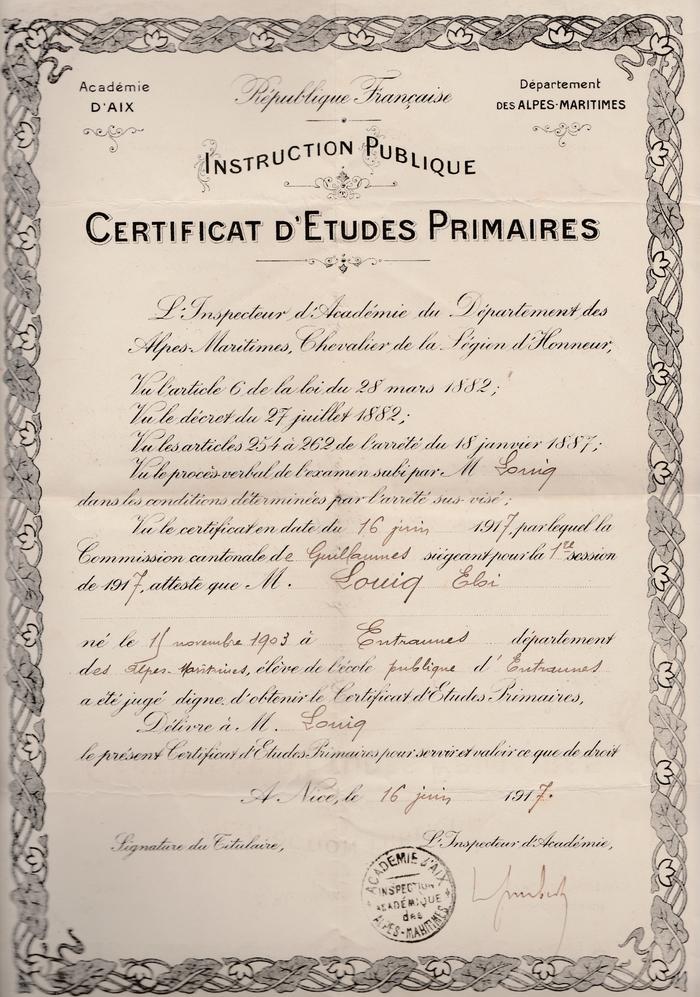 Académie
D'AIX
République Française
Département
DES ALPES-MARITIMES
INSTRUCTION PUBLIQUE
CERTIFICAT D'ETUDES PRIMAIRES
L'Inspecteur d'Académie du Département des
Alpes-Maritimes, Chevalier de la Légion d'Honneur,
Vu l'article 6 de la loi du 28 mars 1882;
Vu le décret du 27 juillet 1882;
Vu les articles 254 à 262 de l'arrêté du 18 janvier 1887;
Vu le procès-verbal de l'examen subi par M Louiq
dans les conditions déterminées par l'arrêté sus-visé;
Vu le certificat en date du 16 juin 1917, par lequel la
Commission cantonale de Guillaumes siégeant pour la 1re session
de 1917, atteste que M. Louiq Eloi
né le 15 novembre 1903 à Entraunes département
des Alpes-Maritimes, élève de l'école publique d'Entraunes
a été jugé digne d'obtenir le Certificat d'Etudes Primaires,
Délivré à M. Louiq
le présent Certificat d'Etudes Primaires pour servir et valoir ce que de droit
A Nice, le 16 juin 1917.
Signature du Titulaire,
L'Inspecteur d'Académie,
ACADEMIE D'AIX
INSPECTION
ACADÉMIQUE
des
ALPES-MARITIMES